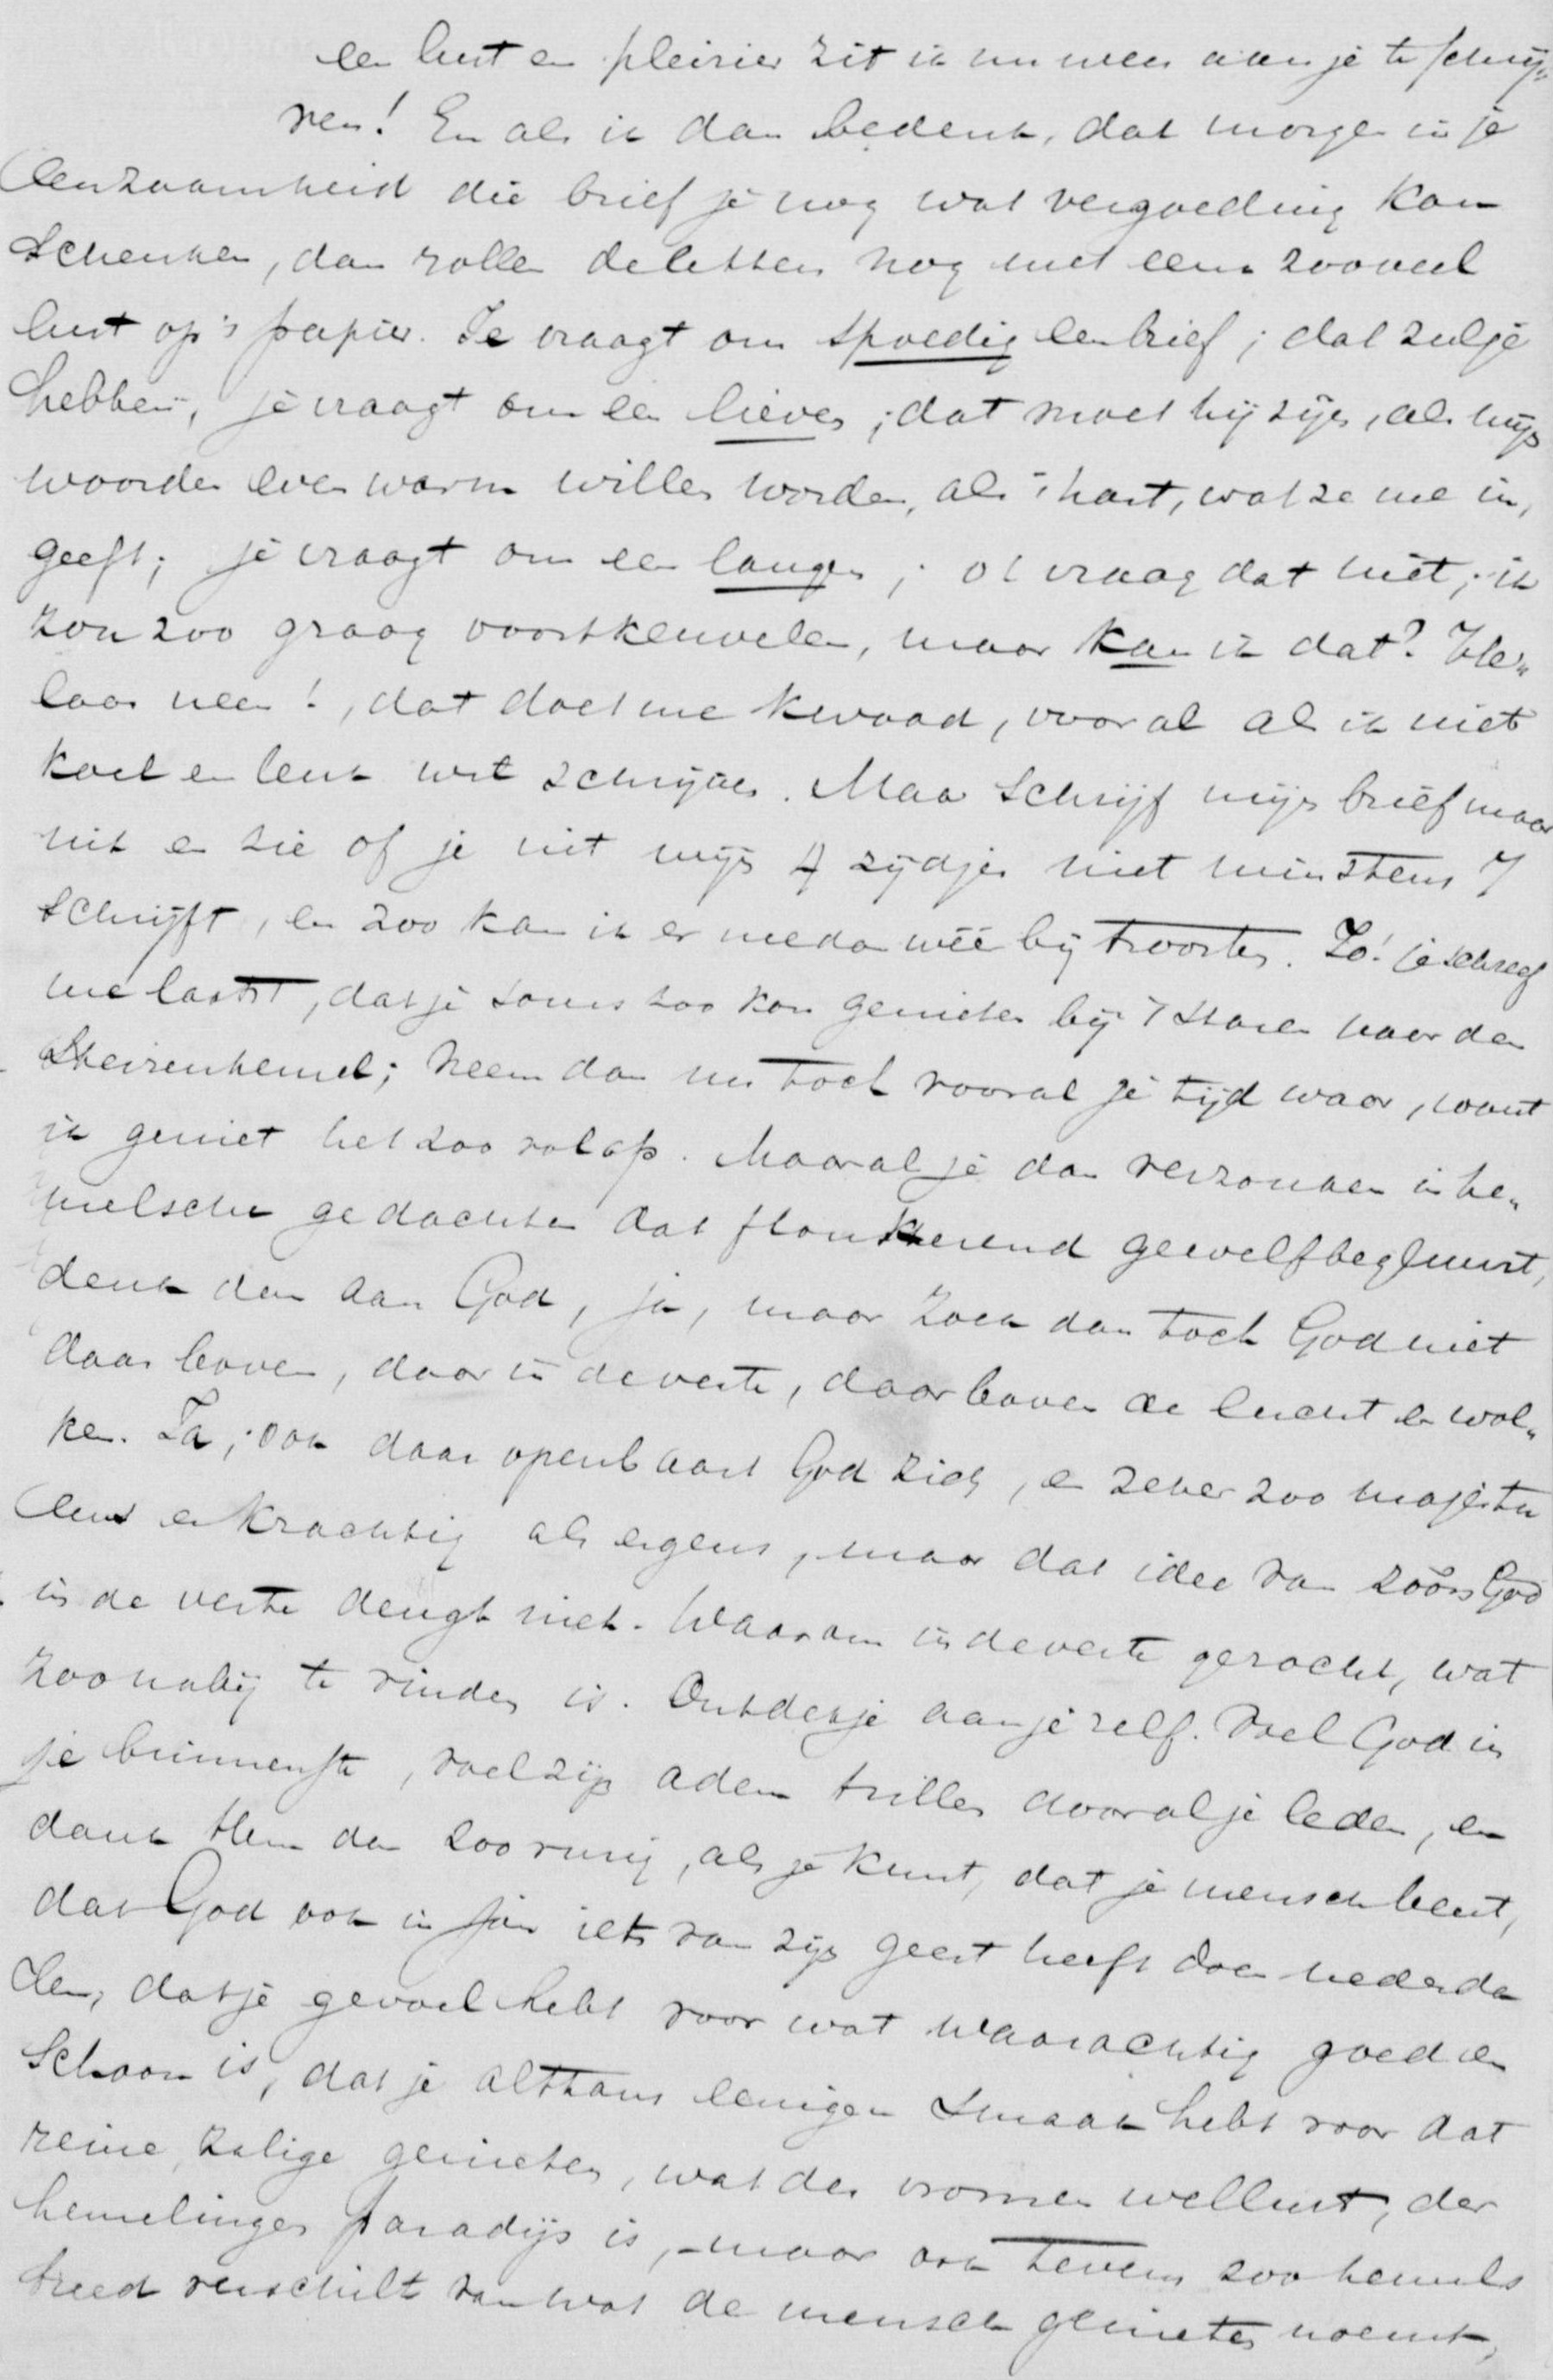 een lust en pleizier zit ik nu weer aan je te schrij„
ven! En als ik dan bedenk, dat morgen in je
eenzaamheid die brief je nog wat vergoeding kan
schenken, dan rollen de letters nog met eens zooveel
lust op 't papier. Je vraagt om spoedig een brief; dat zul je
hebben, je vraagt om een lieven; dat moet hij zijn, als mijn
woorden even warm willen worden, als 't hart, wat ze me in„
geeft; je vraagt om een langen; o! vraag dat niet; ik
zou zoo graag voortkeuvelen, maar kan ik dat? He„
laas neen!, dat doet me kwaad, vooral als ik niet
koel en leuk wil schrijven. Maar schrijf mijn brief maar
uit en zie of je uit mijn 4 zijdjes niet minstens 7
schrijft, en zoo kan ik er me dan meê bij troosten. Zo! je schreef
me laatst, dat je soms zoo kon genieten bij 't staren naar den
sterrenhemel; neem dan nu toch vooral je tijd waar, want
ik geniet het zoo volop. Maar als je dan verzonken in he„
melsche gedachten dat flonkerend gewelf begluurt,
denk dan aan God, ja, maar zoek dan toch God niet
daar boven, daar in de verte, daar boven de lucht en wol„
ken. Ja, ook daar openbaart God zich, en zeker zoo majestu
eus en krachtig als ergens, maar dat idee van zóó'n God
in de verte deugt niet. Waarom in de verte gezocht, wat
zoo nabij te vinden is. Ontdek je aan je zelf. Voel God in
je binnenste, voel zijn adem trillen door al je leden, en
dank Hem dan zoo innig, als je kunt, dat je mensch bent,
dat God ook in jou iets van zijn geest heeft doen nederda
len, dat je gevoel hebt voor wat waarachtig goed en
schoon is, dat je althans eenigen smaak hebt voor dat
reine, zalige genieten, wat der vromen wellust, der
hemelingen paradijs is, maar ook tevens zoo hemels
breed verschilt van wat de mensch genieten noemt,